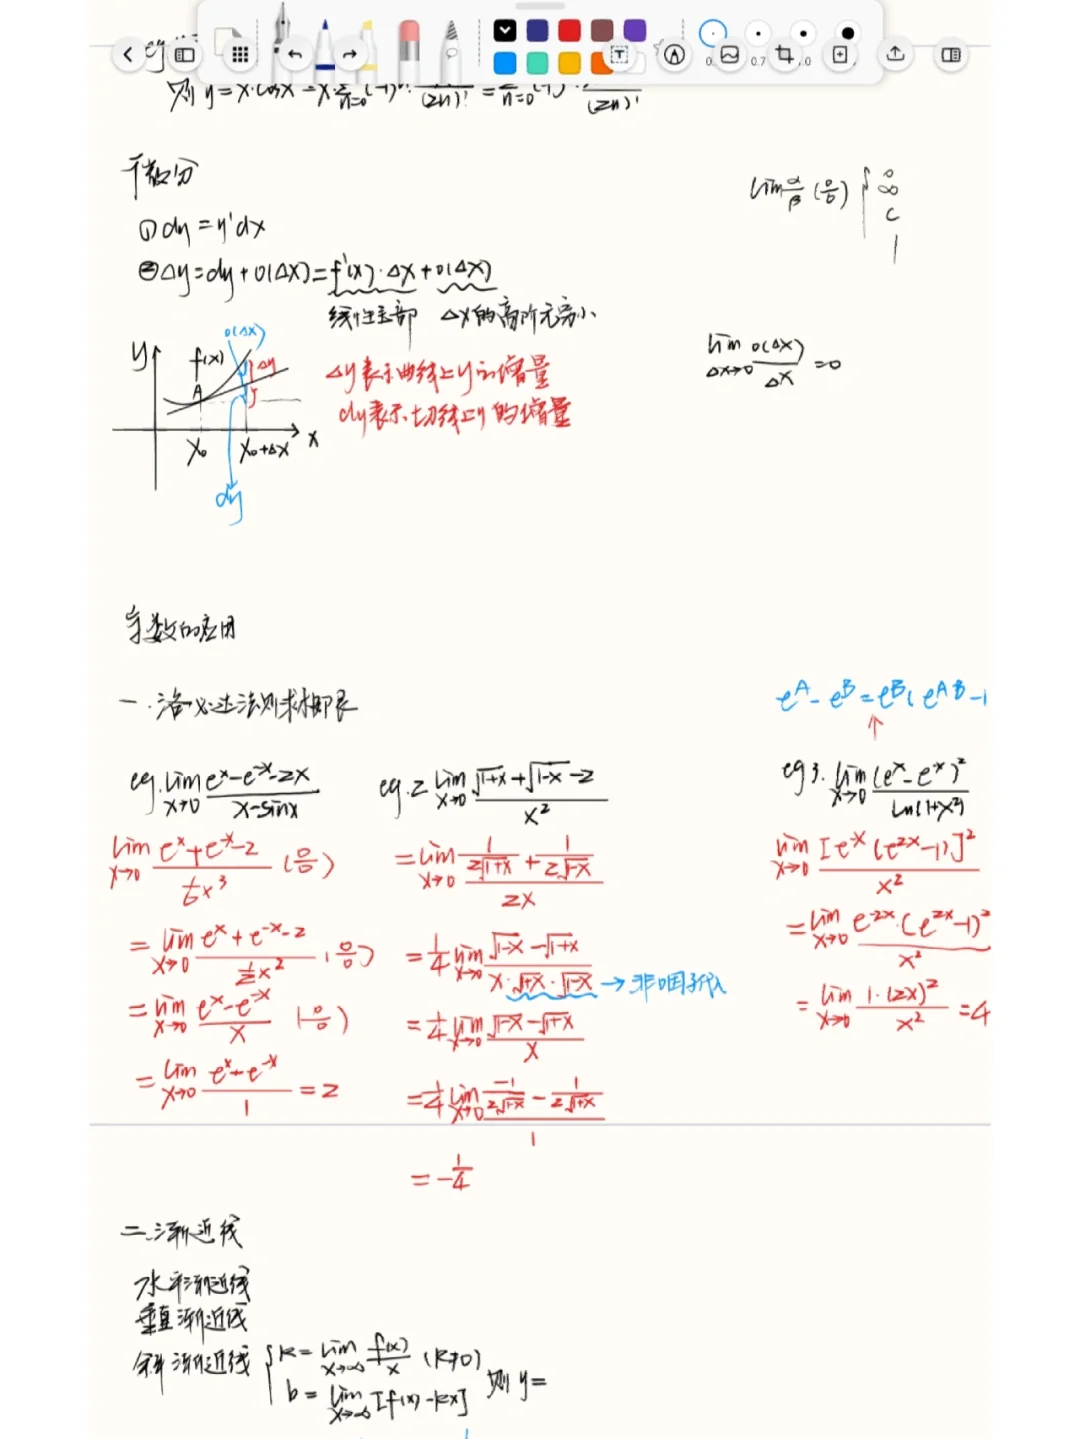 则 y=x·cosx
微分
① dy=y'dx
② Δy=dy+o(Δx)=f'(x)·Δx+o(Δx)
线性主部 Δx的高阶无穷小
lim α/β (0/0) { 0 ∞ C 1
lim Δx→0 o(Δx)/Δx =0
y
f(x)
o(Δx)
Δy
A
x₀
x₀+Δx
x
dy
Δy表示曲线上y的增量
dy表示切线上y的增量
导数的应用
一.洛必达法则求极限
eg. lim x→0 (eˣ-e⁻ˣ-2x)/(x-sinx)
lim x→0 (eˣ+e⁻ˣ-2)/(1/6 x³) (0/0)
= lim x→0 (eˣ+e⁻ˣ-2)/(1/2 x²) (0/0)
= lim x→0 (eˣ-e⁻ˣ)/x (0/0)
= lim x→0 (eˣ+e⁻ˣ)/1 =2
eg.2 lim x→0 (√(1+x)+√(1-x)-2)/x²
= lim x→0 (1/(2√(1+x))+1/(2√(1-x)))/2x
= 1/4 lim x→0 (√(1-x)-√(1+x))/(x·√(1+x)·√(1-x)) → 非0因子代入
= 1/4 lim x→0 (√(1-x)-√(1+x))/x
= 1/4 lim x→0 (-1/(2√(1-x))-1/(2√(1+x)))/1
= -1/4
e^A-e^B=e^B(e^A-B-1
eg 3. lim x→0 (eˣ-e⁻ˣ)²/ln(1+x²)
lim x→0 [e⁻ˣ(e²ˣ-1)]²/x²
= lim x→0 e⁻²ˣ·(e²ˣ-1)²/x²
= lim x→0 1·(2x)²/x² =4
二.渐近线
水平渐近线
垂直渐近线
斜渐近线 { k=lim x→∞ f(x)/x (k≠0)
b=lim x→∞ [f(x)-kx] 则 y=